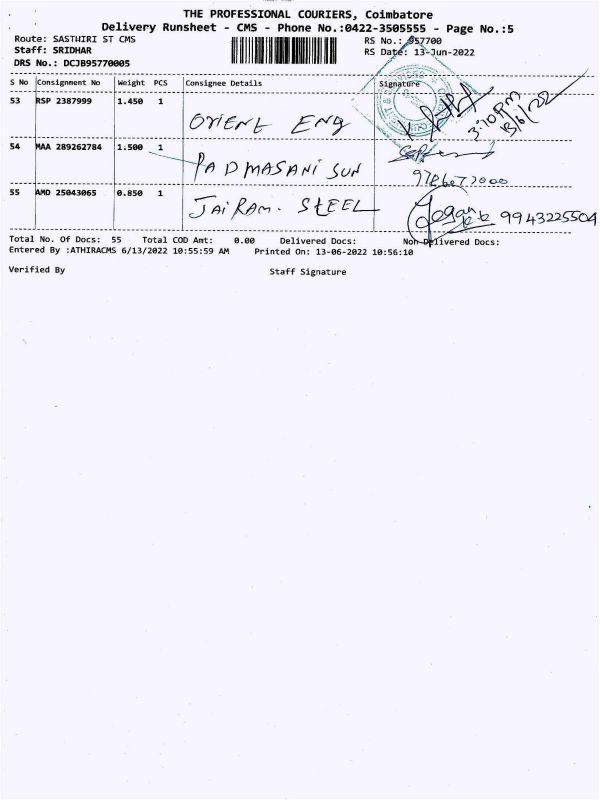 THE PROFESSIONAL COURIERS, Coimbatore
Delivery Runsheet - CMS - Phone No.:0422-3505555 - Page No.:5
Route: SASTHIRI ST CMS RS No.: 957700
Staff: SRIDHAR RS Date: 13-Jun-2022
DRS No.: DCJB95770005
S No Consignment No Weight PCS Consignee Details Signature
53 RSP 2387999 1.450 1 ORIENT ENG 3.10 PM 13/6/22
54 MAA 289262784 1.500 1 PADMASANI SUN
55 AMD 25043065 0.850 1 JAIRAM. STEEL 9943225504
Total No. Of Docs: 55 Total COD Amt: 0.00 Delivered Docs: Non-Delivered Docs:
Entered By :ATHIRACMS 6/13/2022 10:55:59 AM Printed On: 13-06-2022 10:56:10
Verified By Staff Signature